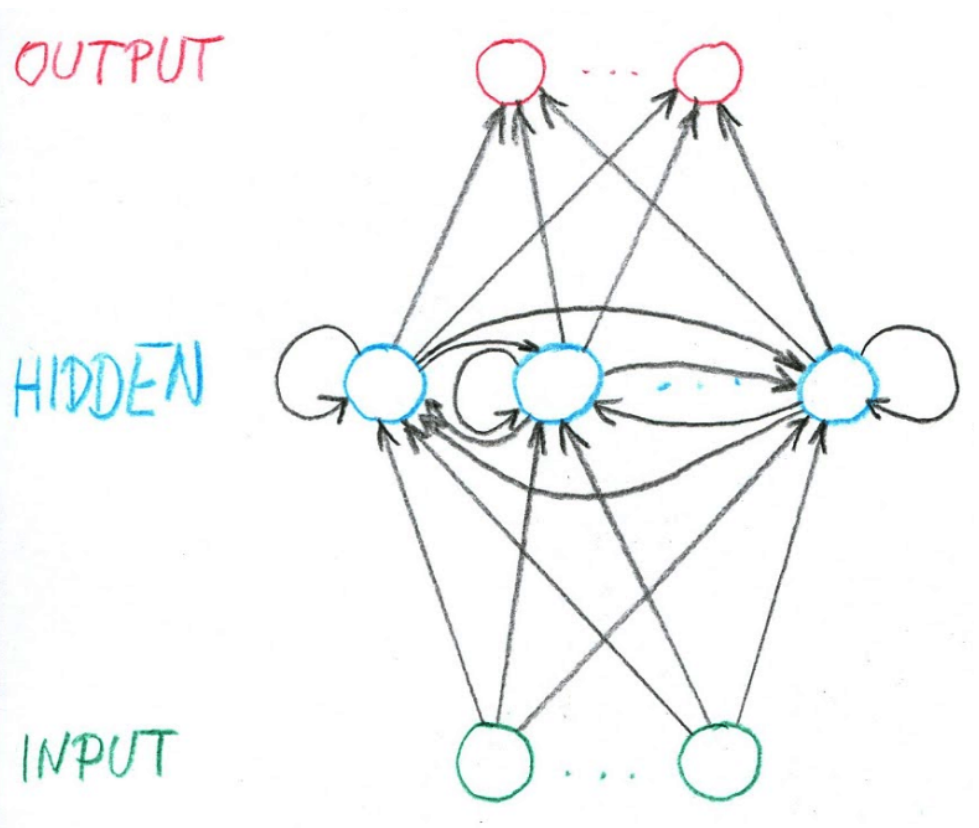 OUTPUT
HIDDEN
INPUT